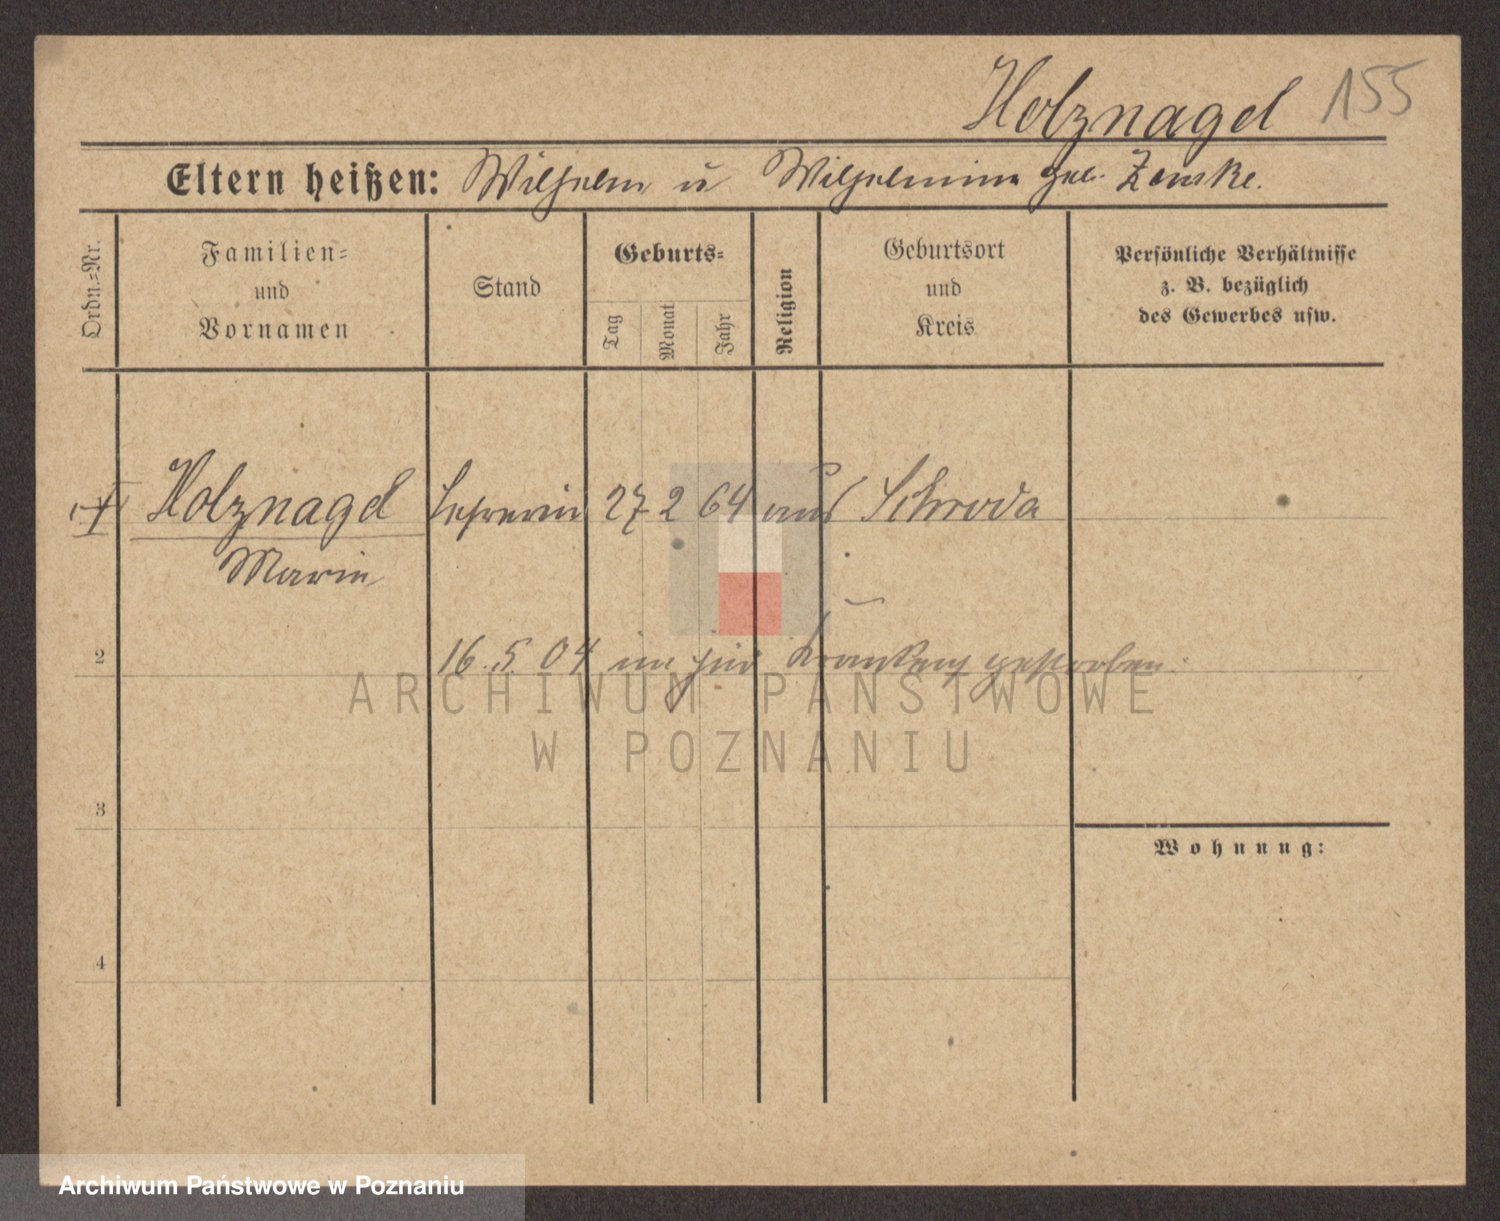 Holznagel 155
Eltern heißen: Wilhelm u Wilhelmine geb. Zenske.
Ordn.-Nr.
Familien- und Vornamen
Stand
Geburts-
Tag
Monat
Jahr
Religion
Geburtsort und Kreis
Persönliche Verhältnisse
z. B. bezüglich
des Gewerbes usw.
1 Holznagel Lehrerin 27 2 64 Schroda
Marie
2 16. 5. 04 im jüd Krankenh gestorben.
ARCHIWUM PAŃSTWOWE
W POZNANIU
3
Wohnung:
4
Archiwum Państwowe w Poznaniu